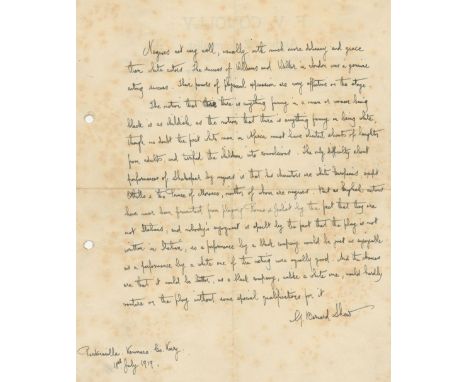 Negroes act very well, usually with much more delicacy and grace
than white actors. The success of Williams and Walker in London was a genuine
acting success. Their powers of physical expression are very effective on the stage.
The notion that there is anything funny in a man or woman being
black is as childish as the notion that there is anything funny in being white,
though no doubt the first white man in Africa must have elicited shouts of laughter
from adults, and terrified the children into convulsions. The only difficulty about
performances of Shakespear by negroes is that his characters are white Europeans except
Othello & the Prince of Morocco, neither of whom are negroes. But as English actors
have never been prevented from playing Romeo & Juliet by the fact that they are
not Italians, and nobody's enjoyment is spoilt by the fact that the play is not
written in Italian, so a performance by a black company would be just as enjoyable
as a performance by a white one if the acting was equally good. And the chances
are that it would be better, as a black company, unlike a white one, would hardly
venture on the play without some special qualifications for it.
G. Bernard Shaw
Parknasilla. Kenmare. Co. Kerry.
July 1919.